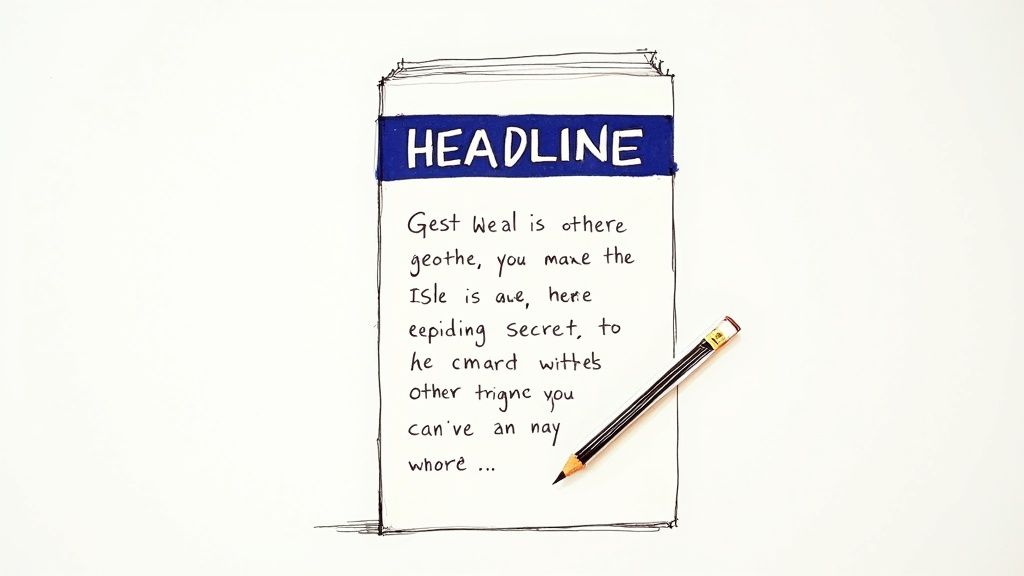 HEADLINE
Gest Weal is othere
geothe, you maxe the
Isle is aue, here
eepiding secret, to
he cmard withe's
Other trignc you
can've an nay
whore ...